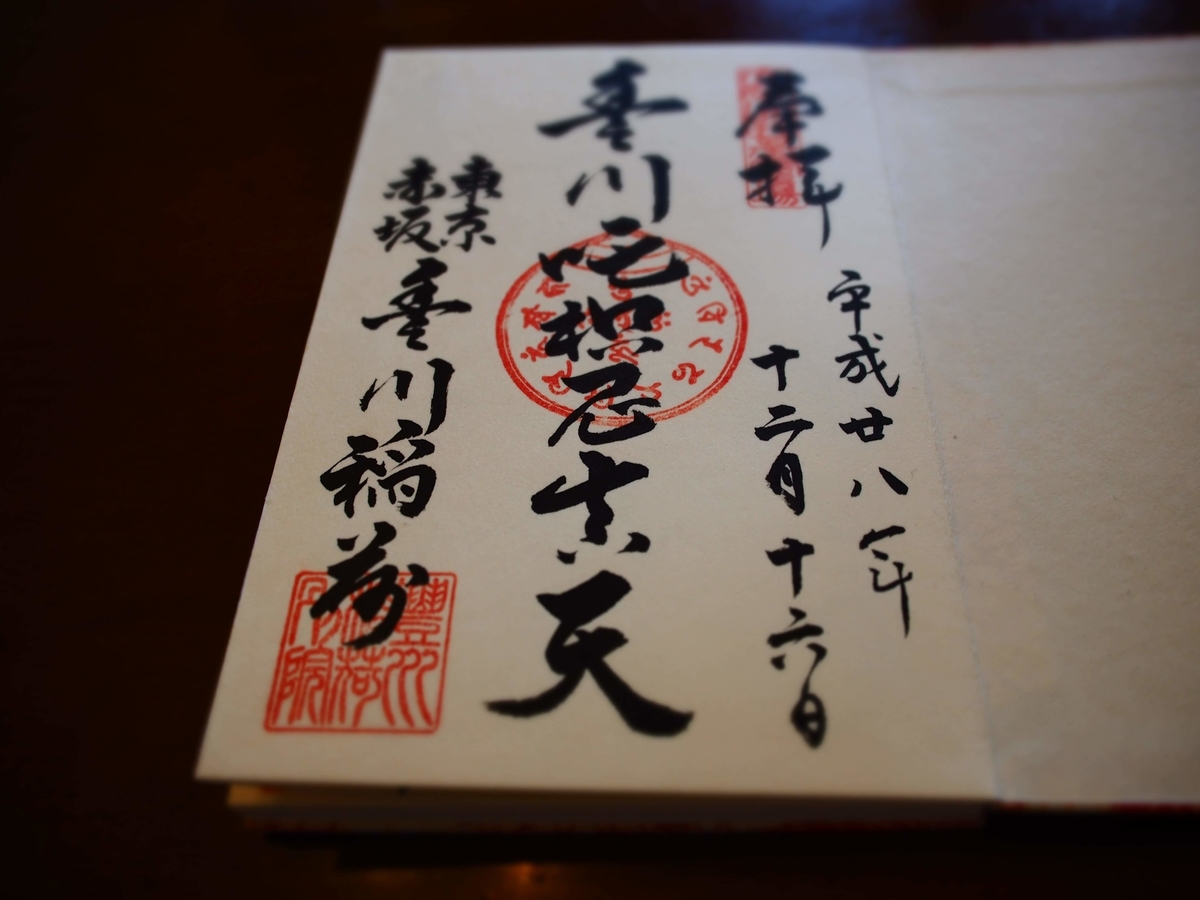 奉拝
平成廿八年
十二月十六日
豊川吒枳尼真天
東京
赤坂
豊川稲荷